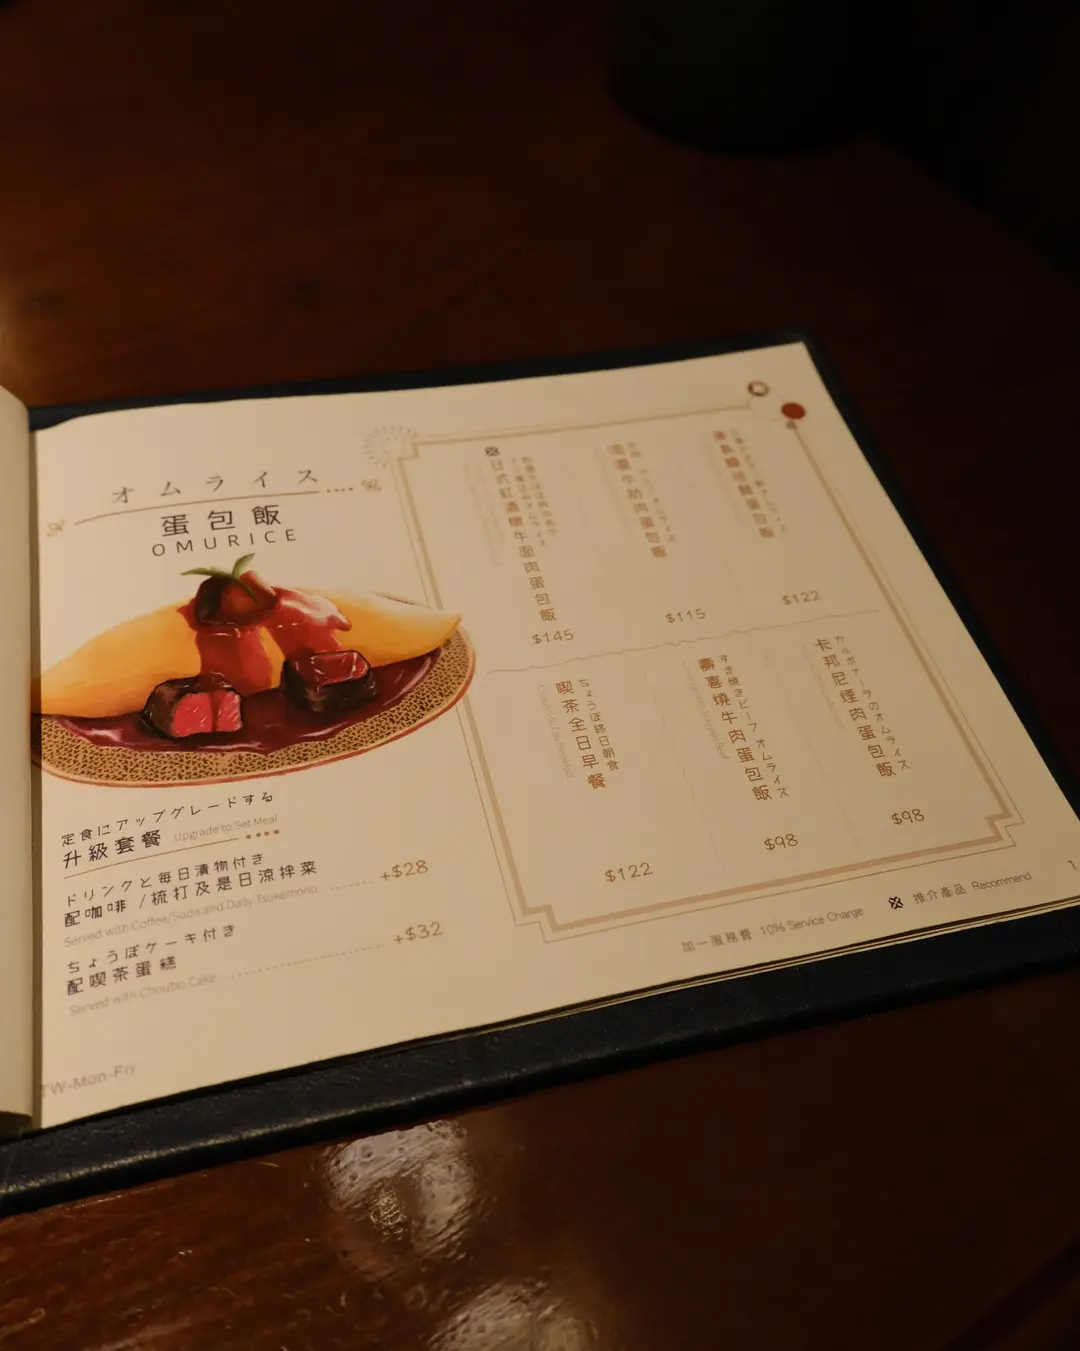 オムライス
蛋包飯
OMURICE
定食にアップグレードする
升級套餐 Upgrade to Set Meal
ドリンクと毎日漬物付き
配咖啡/梳打及是日涼拌菜 +$28
Served with Coffee/Soda and Daily Tsukemono
ちょうぼケーキ付き
配喫茶蛋糕 +$32
Served with Choubo Cake
TW-Mon-Fri
牛肋肉蛋包飯
オムライス
$115
$122
日式紅酒燉牛面肉蛋包飯
$145
カルボナーラのオムライス
卡邦尼煙肉蛋包飯
$98
すき焼きビーフ オムライス
壽喜燒牛肉蛋包飯
$98
ちょうぼ終日朝食
喫茶全日早餐
$122
加一服務費 10% Service Charge
推介產品 Recommend
1